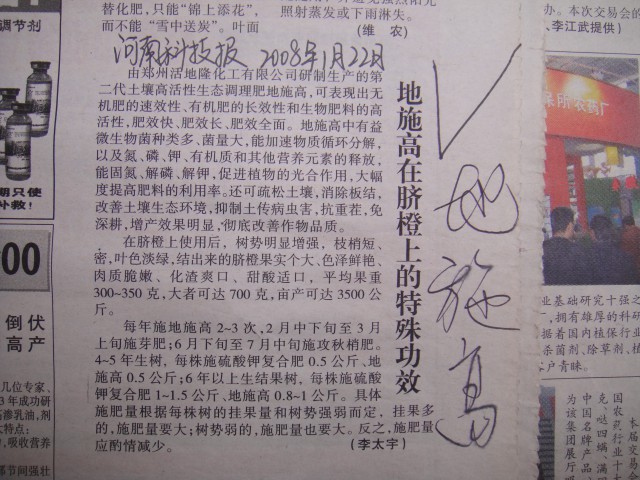 替化肥,只能“锦上添花”,
而不能“雪中送炭”。叶面
照射蒸发或下雨淋失。
(维 农)
办。本次交易会的
,李江武提供)
调节剂
河南科技报 2008年1月22日
由郑州活地隆化工有限公司研制生产的第
二代土壤高活性生态调理肥地施高,可表现出无
机肥的速效性、有机肥的长效性和生物肥料的高
活性,肥效快、肥效长、肥效全面。地施高中有益
微生物菌种类多、菌量大,能加速物质循环分解,
以及氮、磷、钾、有机质和其他营养元素的释放,
能固氮、解磷、解钾,促进植物的光合作用,大幅
度提高肥料的利用率。还可疏松土壤,消除板结,
改善土壤生态环境,抑制土传病虫害,抗重茬,免
深耕,增产效果明显,彻底改善作物品质。
在脐橙上使用后,树势明显增强,枝梢短、
密,叶色淡绿,结出来的脐橙果实个大、色泽鲜艳、
肉质脆嫩、化渣爽口、甜酸适口,平均果重
300~350 克,大者可达 700 克,亩产可达 3500 公
斤。
每年施地施高 2~3 次,2 月中下旬至 3 月
上旬施芽肥;6 月下旬至 7 月中旬施攻秋梢肥。
4~5 年生树,每株施硫酸钾复合肥 0.5 公斤、地
施高 0.5 公斤;6 年以上生结果树,每株施硫酸
钾复合肥 1~1.5 公斤、地施高 0.8~1 公斤。具体
施肥量根据每株树的挂果量和树势强弱而定,挂果多
的,施肥量要大;树势弱的,施肥量也要大。反之,施肥量
应酌情减少。
(李太宇)
地施高在脐橙上的特殊功效
地施高
期只使
补救!
00
倒伏
高产
几位专家、
3年成功研
高渗乳油,剂
大特点:
,吸收营养
部节间强壮
保所农药厂
业基础研究十强之
,拥有雄厚的科研
据着国内植保行业
杀菌剂、除草剂、植
客户青睐。
本届交易会
农药行业十大
国名
克、哒四螨、满
中国名牌产品
该集团展厅
为